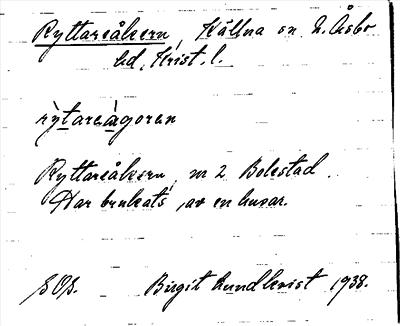 Ryttareåkern, Källna sn N. Åsbo
hd, Krist. l.
rỳtareàgoren
Ryttareåkern, nr 2 Bolestad.
Har brukats, av en husar.
S.O.S. Birgit Lundkvist 1938.